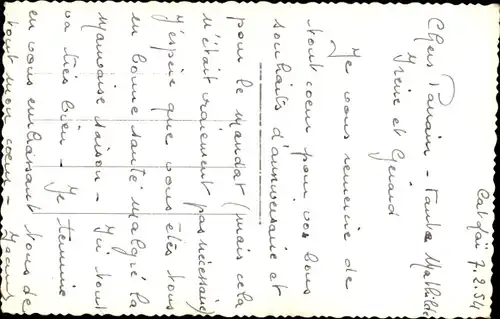 Cat Laï 7.2.54
Chers Parrain - Tante Mathilde
Irène et Gérard
Je vous remercie de
tout coeur pour vos bons
souhaits d'anniversaire et
pour le mandat (mais cela
n'était vraiment pas nécessaire)
J'espère que vous êtes tous
en bonne santé malgré la
mauvaise saison - Ici tout
va très bien - Je termine
en vous embrassant tous de
tout mon coeur -